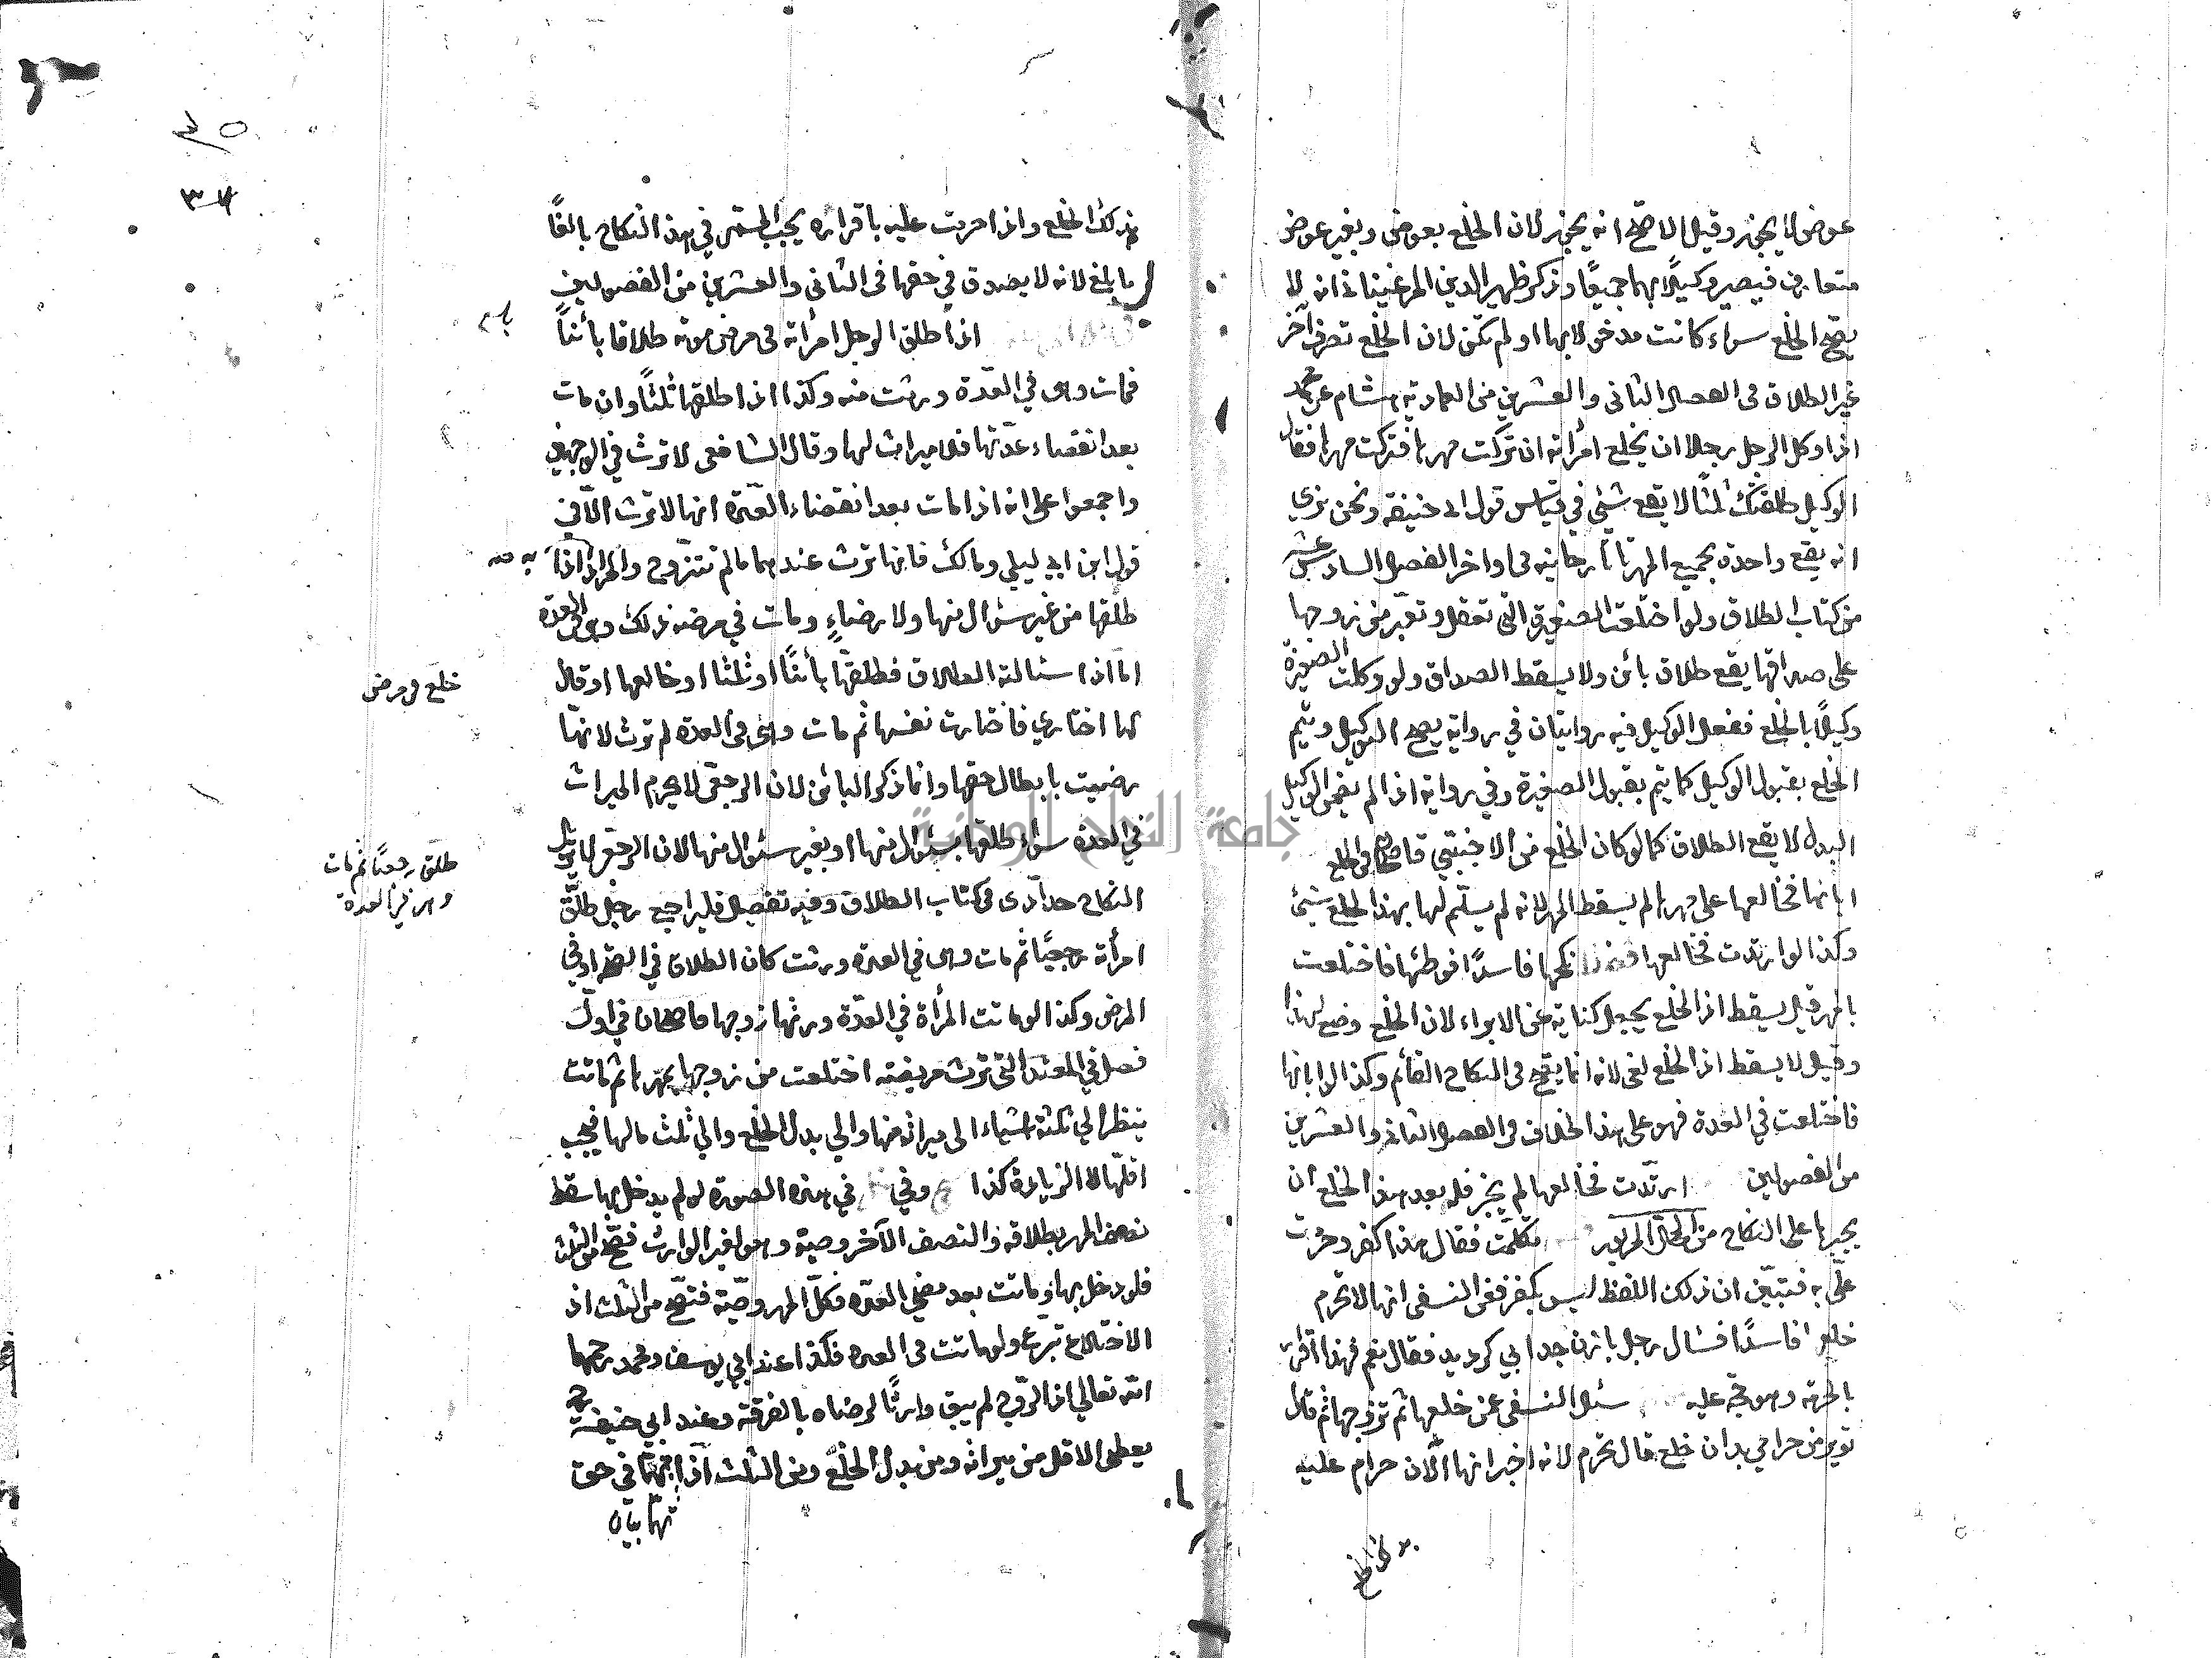 عوض لا يجيز وقيل الاصح انه يجيز لان الخلع بعوض وبغير عوض
متعارف فيصير وكيلا بهما جميعا وذكر ظهير الدين المرغيناني انه لا
يصح الخلع سواء كانت مدخولا بها او لم تكن لان الخلع تصرف آخر
غير الطلاق فى الفصل الثانى والعشرين من العمادية هشام عن محمد
اذا وكل الرجل رجلا ان يخلع امرأته ان تركت مهرها فتركت مهرها فقال
الوكيل طلقتك ثلثا لا يقع شيئ في قياس قول ابى حنيفه ونحن نرى
انه يقع واحدة بجميع المهر تاتارخانيه فى اواخر الفصل السادس عشر
من كتاب الطلاق ولو اختلعت الصغيرة التى تعقل وتعبر من زوجها
على صداقها يقع طلاق بائن ولا يسقط الصداق ولو وكلت الصغيرة
وكيلا بالخلع ففعل الوكيل فيه روايتان في رواية يصح التوكيل ويتم
الخلع بقبول الوكيل كما يتم بقبول الصغيرة وفي رواية اذا لم يضمن الوكيل
البدل لا يقع الطلاق كما لو كان الخلع من الاجنبي قاضيخان فى الخلع
ابانها فخالعها على مهرها لم يسقط المهر لانه لم يسلم لها بهذا الخلع شيئ
وكذا لو ارتدت فخالعها نكحها فاسدا فوطئها فاختلعت
بالمهر قيل يسقط اذ الخلع يجعل كناية عن الابراء لان الخلع وضع لهذا
وقيل لا يسقط اذ الخلع لغى لانه انما يصح فى النكاح القائم وكذا لو ابانها
فاختلعت في العدة فهو على هذا الخلاف فى الفصل الثانى والعشرين
من الفصولين ارتدت فخالعها لم يجز فله بعد هذا الخلع ان
يجبرها على النكاح من المحل المزبور تكلمت فقال هذا كفر وحرمت
علي به فتبين ان ذلك اللفظ ليس بكفر فعن النسفى انها لا تحرم
خلع فاسدا فسئال رجل با زن جدايي كرديد فقال نعم فهذا اقرار
بالحرمة وهو حجة عليه سئل النسفى عن خلعها ثم تزوجها ثم قال
حرامي بدان خلع قال تحرم لانه اخبر انها الآن حرام عليه
بذلك الخلع واذا حرمت عليه باقراره يجب المسمى في هذا النكاح بالغا
ما بلغ لانه لا يصدق في حقها فى الثانى والعشرين من الفصولين
اذا طلق الرجل امرأته فى مرض موته طلاقا بائنا
فمات وهى في العدة ورثت منه وكذا اذا طلقها ثلثا وان مات
بعد انقضاء عدتها فلا ميراث لها وقال الشافعى لا ترث في الوجهين
واجمعوا على انه اذا مات بعد انقضاء العدة انها لا ترث الا في
قول ابن ابي ليلي ومالك فانها ترث عندهما ما لم تتزوج والمراد اذا
طلقها من غير سئوال منها ولا رضاء ومات في مرضه ذلك وهى فى العدة
اما اذا سئالته الطلاق فطلقها بائنا او ثلثا او خالعها او قال
لها اختاري فاختارت نفسها ثم مات وهى فى العدة لم ترث لانها
رضيت بابطال حقها وانما ذكر البائن لان الرجعى لا يحرم الميراث
في العدة سواء طلقها بسئوال منها او بغير سئوال منها لان الرجعى لا يزيل
النكاح حدادى فى كتاب الطلاق وفيه تفصيل فليراجع رجل طلق
امرأته رجعيا ثم مات وهى في العدة ورثت كان الطلاق في الصحة او في
المرض وكذا لو ماتت المرأة في العدة ورثها زوجها قاضيخان في اول
فصل في المعتدة التى ترث مريضة اختلعت من زوجها بمهرها ثم ماتت
ينظر الي ثلثة اشياء الى ميراثه منها والي بدل الخلع والي ثلث مالها فيجب
اقلها لا الزيادة كذا وفي في هذه الصورة لو لم يدخل بها سقط
نصف المهر بطلاقه والنصف الآخر وصية وهو لغير الوارث فصح من الثلث
فلو دخل بها وماتت بعد مضي العدة فكل المهر وصية فتصح من الثلث اذ
الاختلاع تبرع ولو ماتت فى العدة فكذا عند ابي يوسف ومحمد رحمهما
الله تعالي اذ الزوج لم يبق وارثا لرضاه بالفرقة وعند ابي حنيفة رح
يعطى الاقل من ميراثه ومن بدل الخلع ومن الثلث اذ اتهما في حق
خلع فى مرض
طلق رجعيا ثم مات
وهى في العدة
جامعة النجاح الوطنية